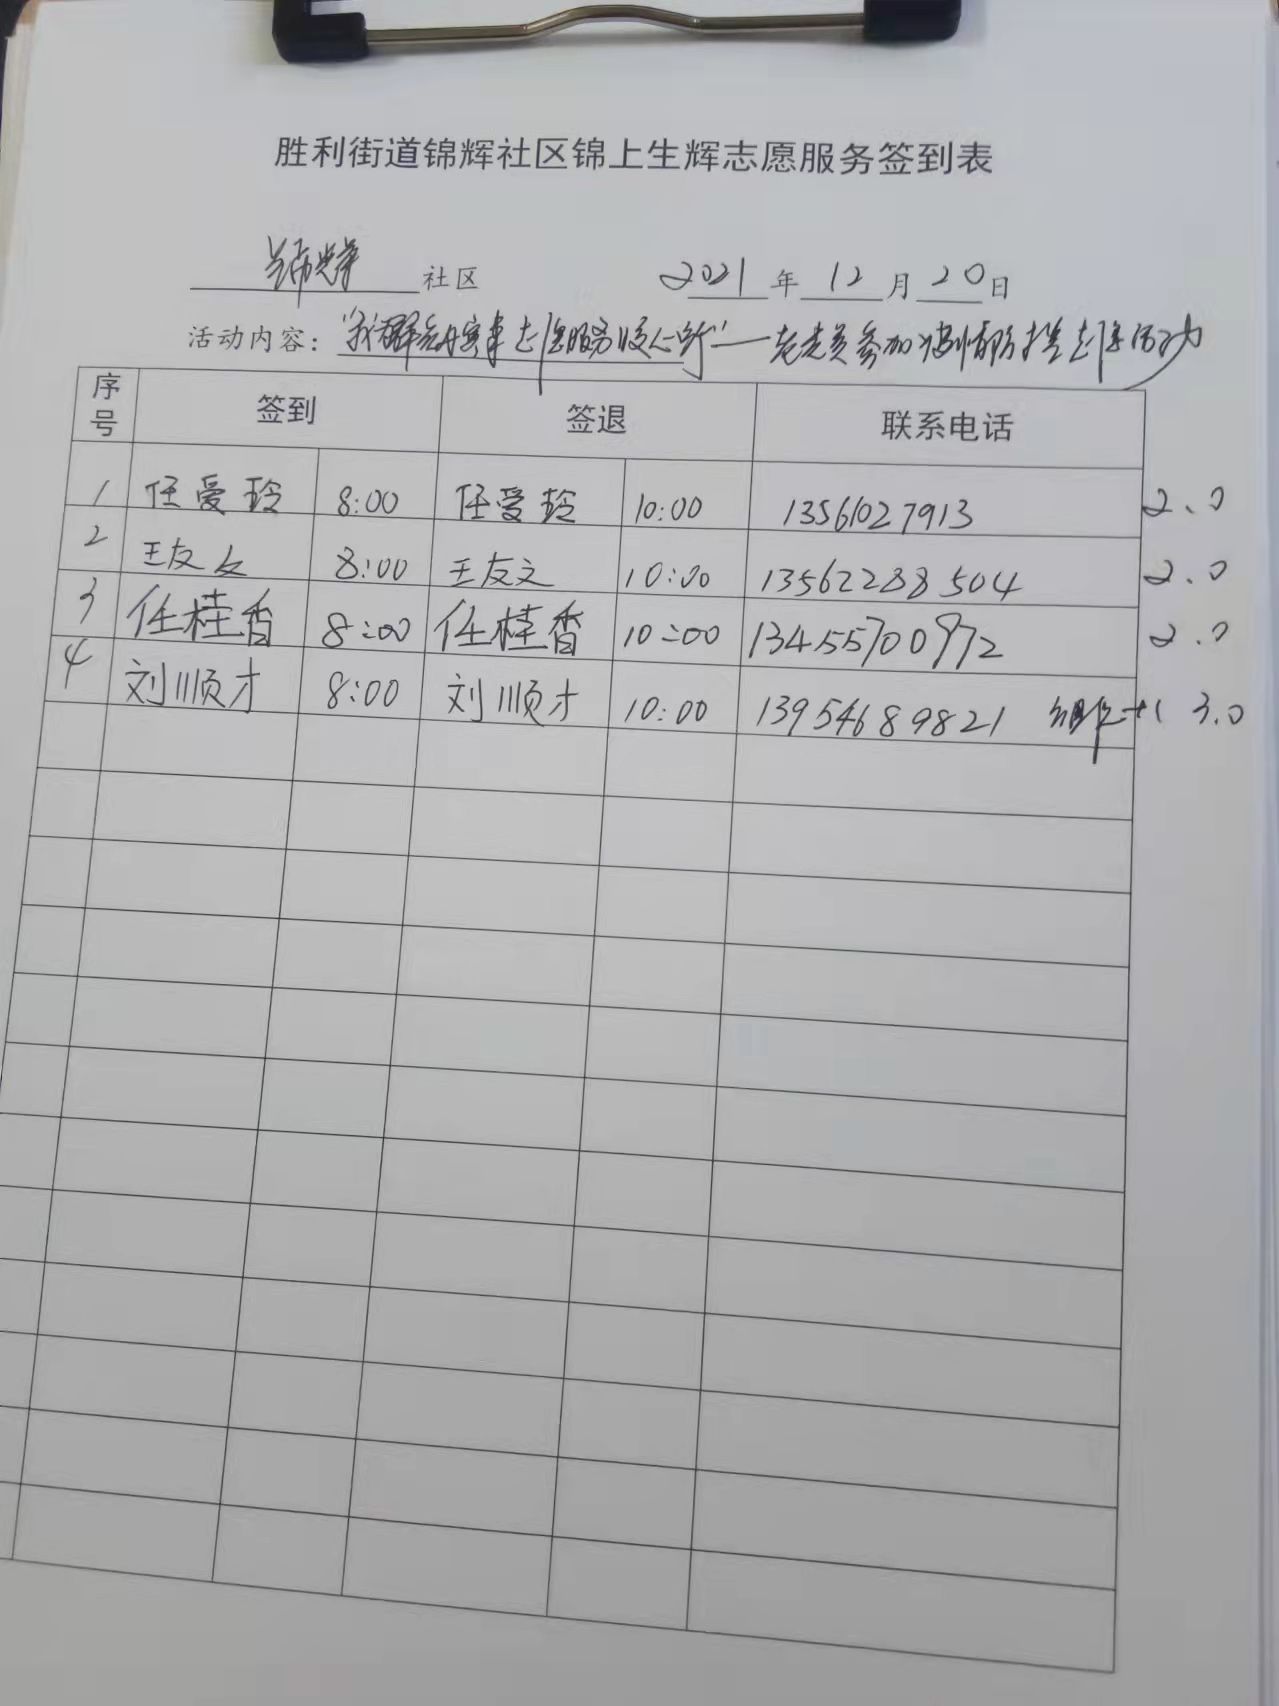 胜利街道锦辉社区锦上生辉志愿服务签到表
锦辉 社区 2021 年 12 月 20 日
活动内容：“我为群众办实事 志愿服务暖心窝”——老党员参加疫情防控志愿活动
序号 签到 签退 联系电话
1 任爱玲 8:00 任爱玲 10:00 13561027913 2.0
2 王友文 8:00 王友文 10:00 13562288504 2.0
3 任桂香 8:00 任桂香 10:00 13455700972 2.0
4 刘顺才 8:00 刘顺才 10:00 13954689821 组织+1 3.0